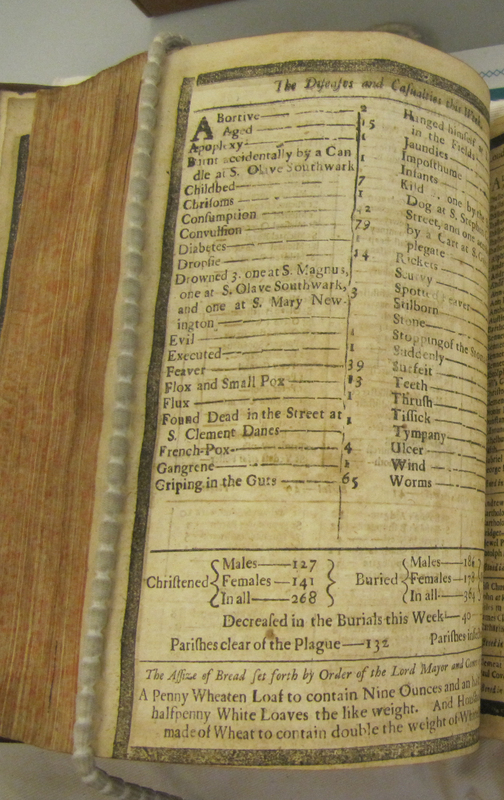 The Diseases and Casualties this Week
ABortive — 2
Aged — 15
Apoplexy — 1
Burnt accidentally by a Can
dle at S. Olave Southwark — 1
Childbed — 7
Chrisoms — 1
Consumption
Convulsion — 79
Diabetes
Dropsie — 14
Drowned 3. one at S. Magnus,
one at S. Olave Southwark,
and one at S. Mary New-
ington — 3
Evil
Executed — 1
Feaver — 39
Flox and Small Pox — 13
Flux — 1
Found Dead in the Street at
S. Clement Danes — 1
French-Pox — 4
Gangrene
Griping in the Guts — 65
Hanged himself
in the Fields
Jaundies
Imposthume
Infants
Kild .. one by the
Dog at S. Steph
Street, and one
by a Cart at S.
plegate
Rickets
Scurvy
Spotted Feaver
Stilborn
Stone
Stopping of the
Suddenly
Surfeit
Teeth
Thrush
Tissick
Tympany
Ulcer
Wind
Worms
Christened { Males — 127
Females — 141
In all — 268 }
Buried { Males — 186
Females — 178
In all — 364
Decreased in the Burials this Week — 40
Parishes clear of the Plague — 132 Parishes
The Assize of Bread set forth by Order of the Lord Mayor and
A Penny Wheaten Loaf to contain Nine Ounces and an
halfpenny White Loaves the like weight. And
made of Wheat to contain double the weight of